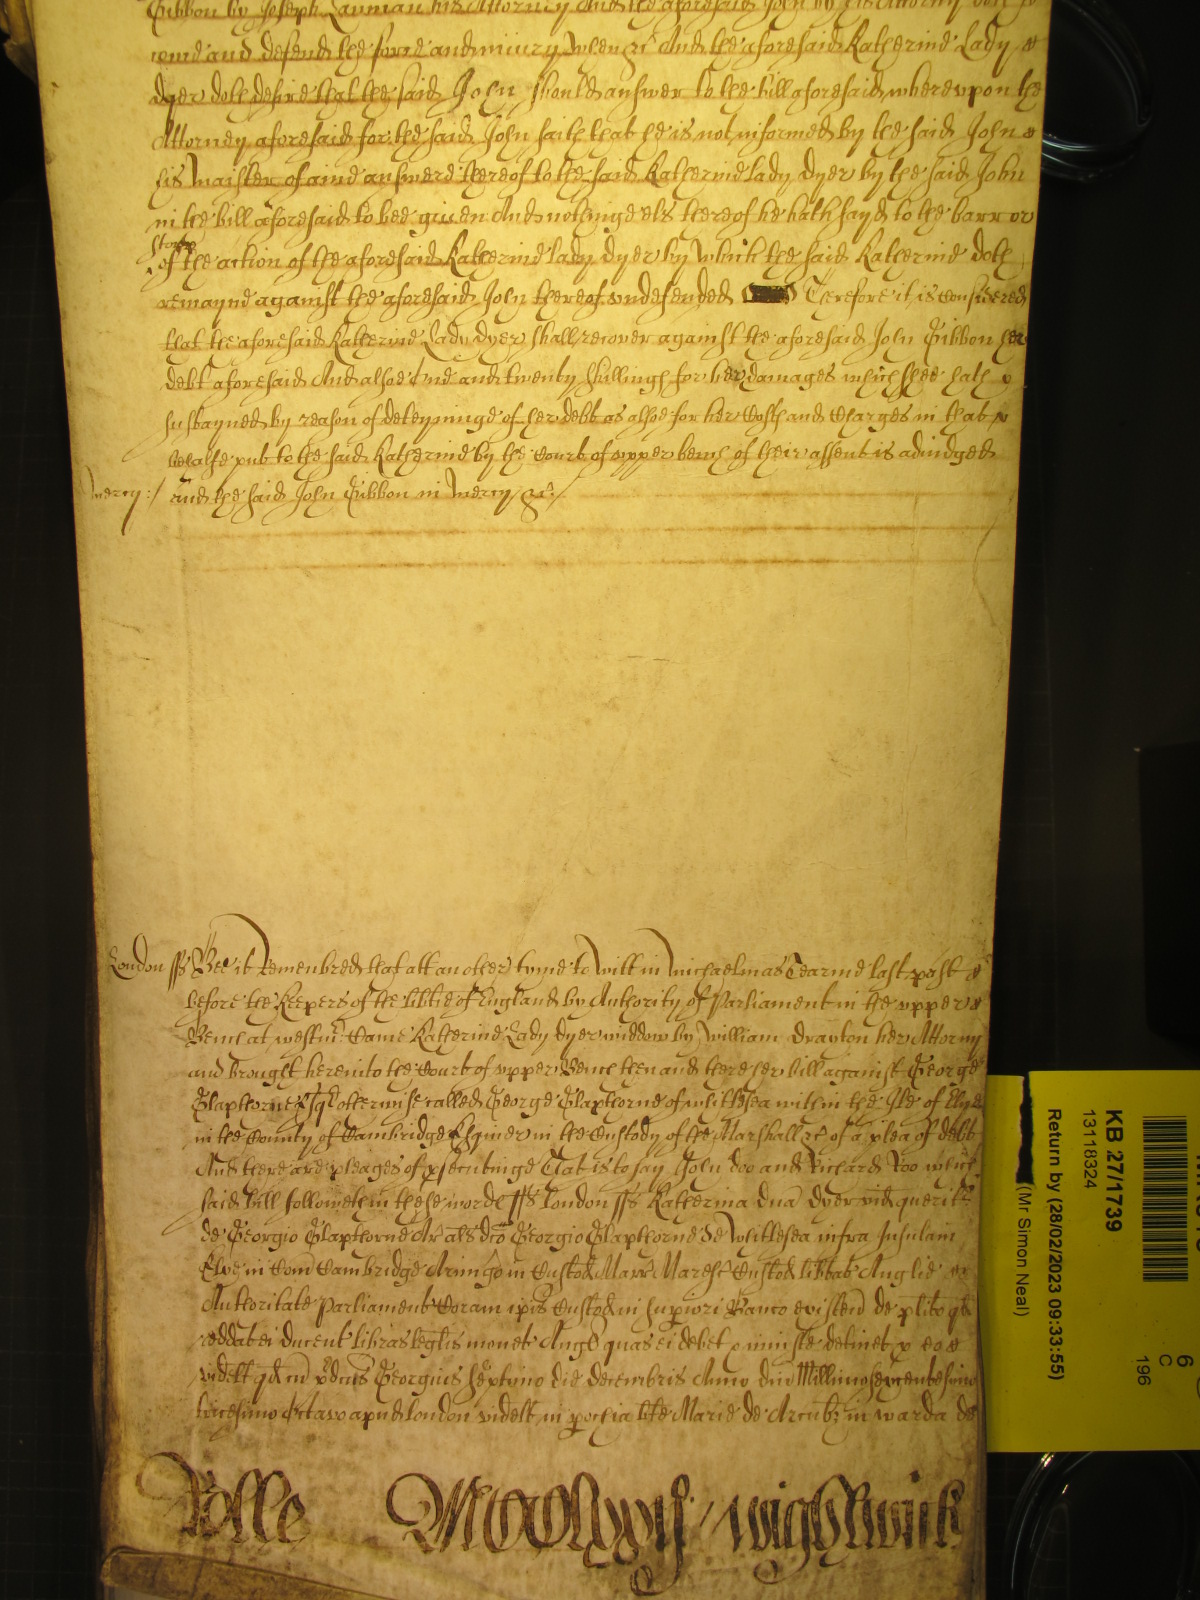 Gibbon by Joseph his Attorney And the aforesaid John by his Attorney doth
come and defend the force and iniury when &c And the aforesaid Katherine Lady
dyer doth desire that the said John should answer to the bill aforesaid whereupon the
Attorney aforesaid for the said John saith that he is not informed by the said John
his Maister of aine answere thereof to the said Katherine lady dyer by the said John
in the bill aforesaid to bee given And nothinge els thereof he hath sayd to the barr or
stopp
of the action of the aforesaid Katherine lady dyer by which the said Katherine doth
remayne against the aforesaid John thereof undefended Therefore it is considered
that the aforesaid Katherine Lady dyer shall recover against the aforesaid John Gibbon her
debt aforesaid And alsoe One and twenty shillings for her damages which shee hath
susteyned by reason of deteyninge of her debt as alsoe for her Costs and Charges in that
behalfe put to the said Katherine by the Court of upper bench of their assent is adiudged
mercy :/ and the said John Gibbon in mercy &c:/
London ss Bee it Remembred that att another tyme to Witt in Michaelmas Tearme last past
before the Keepers of the libtie of England by Authority of Parliament in the upper
Bench at westmr Came Katherine Lady dyer widdow by William drayton her Attorny
and brought here into the Court of upper Bench then and there her bill against George
Glapthorne Esqr otherwise called George Glapthorne of whittlsea within the Ile of Elye
in the County of Cambridge Esquier in the Custody of the Marshall &c of a plea of debt
And there are pleages of psecutinge That is to say John doo and Richard Roo which
said bill followeth in these words ss London ss Katherina dna dyer vid querit
de Georgio Glapthorne Ar als dco Georgio Glapthorne de Witlesea infra Insulam
Elye in Com Cambridge Armigo in Custod Marr Maresc Custod libtat Anglie ex
Authoritate Parliament Coram ipis Custod in supiori Banco existen de plito qd
reddat ei ducent libras leglis monet Angl quas ei debet & iniuste detinet p eo
videlt qd cu pdcus Georgius septimo die decembris Anno dni Millimo sexcentesimo
tricesimo Octavo apud london videlt in pochia bte Marie de Arcubz in warda de
Rolle wightwick
KB 27/1739
13118324
Return by (28/02/2023 09:33:55)
(Mr Simon Neal)
6
C
196